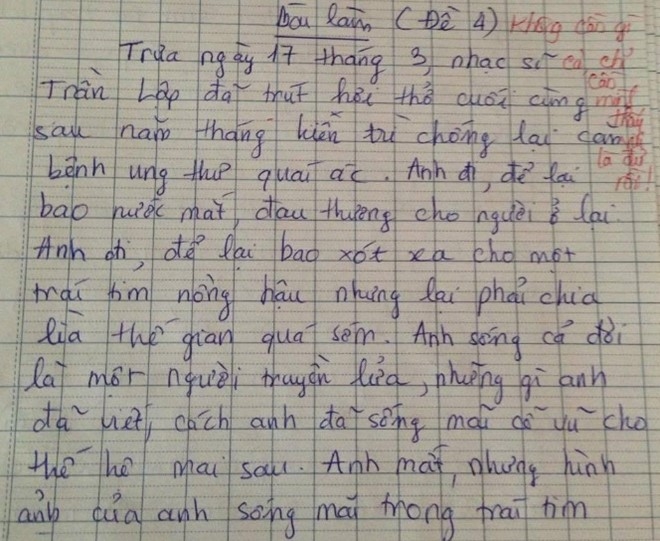 Bài làm (Đề 4) Không cần gì
Trưa ngày 17 tháng 3, nhạc sĩ cả, chỉ
Trần Lập đã trút hơi thở cuối cùng cần một
sau năm tháng kiên trì chống lại căn thấy
bệnh ung thư quái ác. Anh đi, để lại là đủ rồi!
bao nước mắt, đau thương cho người ở lại.
Anh đi, để lại bao xót xa cho một
trái tim nồng hậu nhưng lại phải chia
lìa thế gian quá sớm. Anh sống cả đời
là một người truyền lửa, những gì anh
đã viết, cách anh đã sống mãi cổ vũ cho
thế hệ mai sau. Anh mất, nhưng hình
ảnh của anh sống mãi trong trái tim